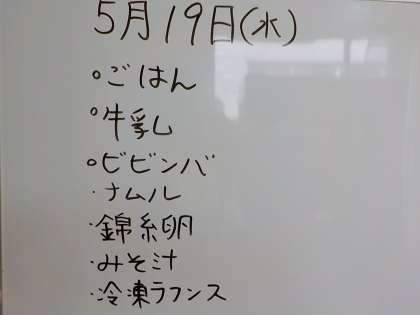 5月19日(水)
○ごはん
○牛乳
○ビビンバ
・ナムル
・錦糸卵
・みそ汁
・冷凍ラフンス